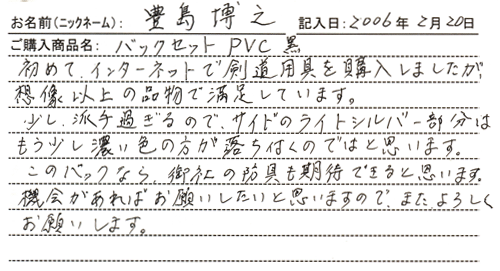 お名前(ニックネーム): 豊島 博之 記入日:2006年 2月20日
ご購入商品名: バックセット PVC 黒
初めて、インターネットで剣道用具を購入しましたが、
想像以上の品物で満足しています。
少し、派手過ぎるので、サイドのライトシルバー部分は
もう少し濃い色の方が落ち付くのではと思います。
このバックなら、御社の防具も期待できると思います。
機会があればお願いしたいと思いますので、またよろしく
お願いします。